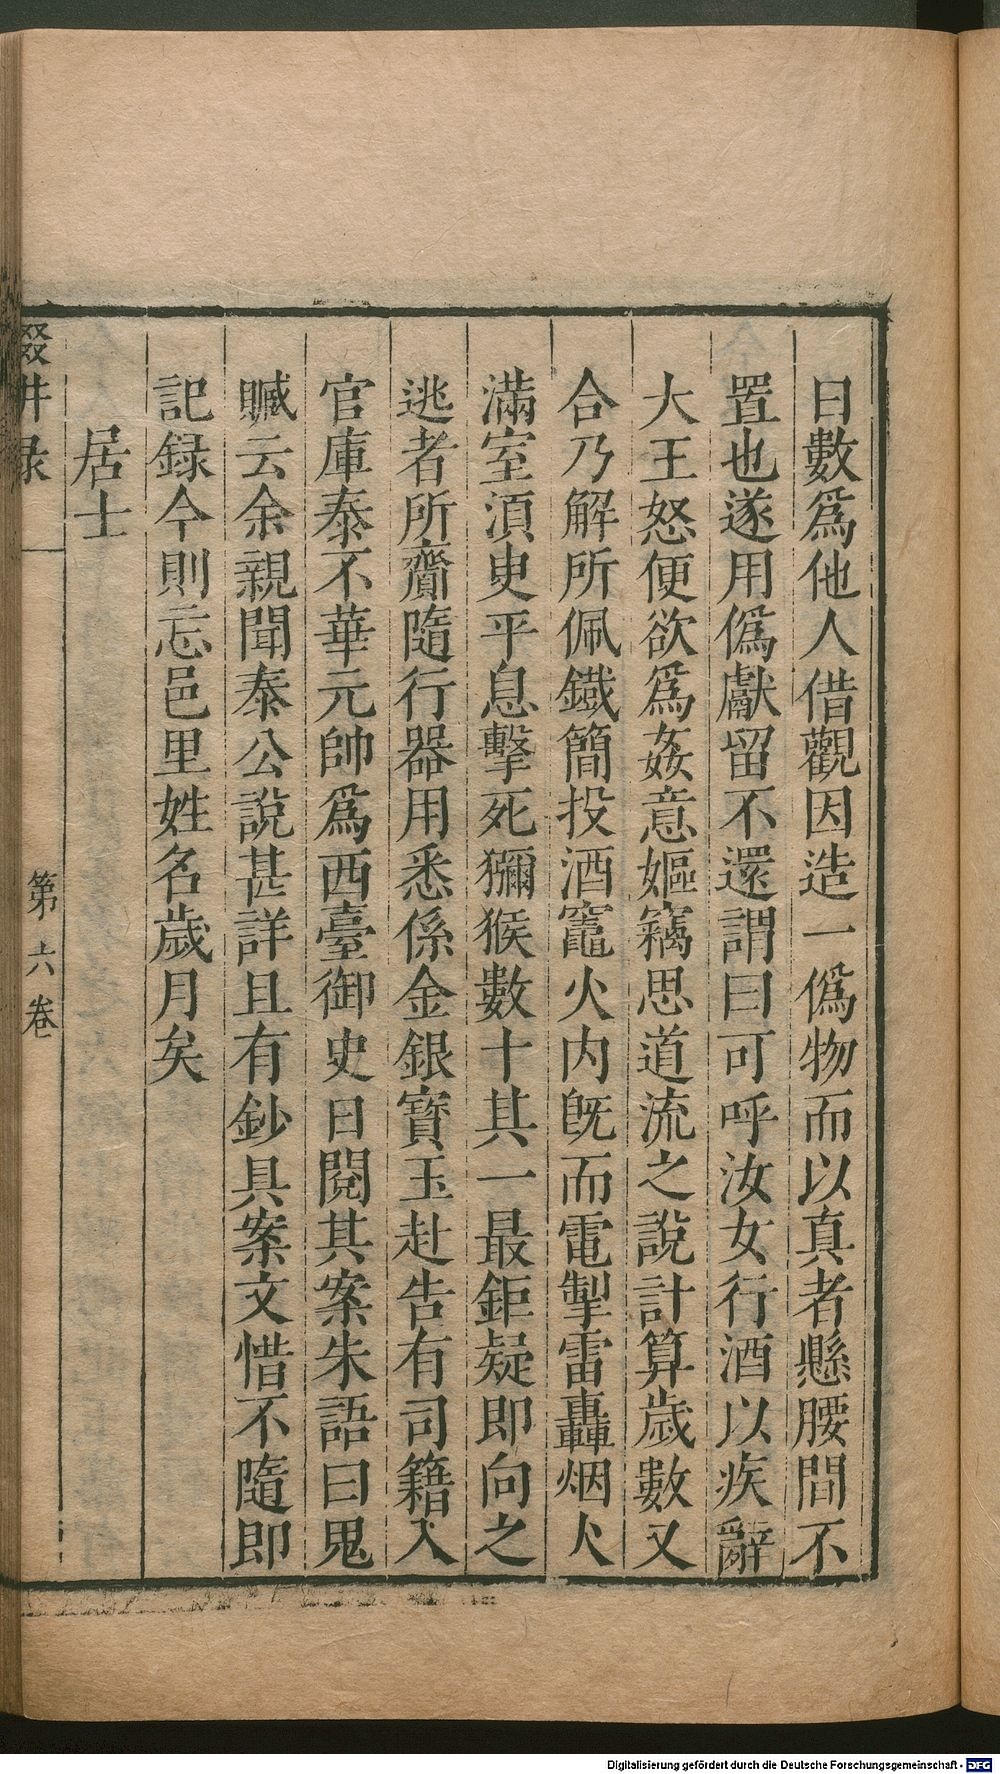 日數爲他人借觀因造一僞物而以真者懸腰間不
置也遂用僞獻留不還謂曰可呼汝女行酒以疾辭
大王怒便欲爲姦意嫗竊思道流之說計算歲數又
合乃解所佩鐵簡投酒竈火内既而電掣雷轟烟火
滿室湏臾平息擊死獼猴數十其一最鉅疑即向之
逃者所齎隨行器用悉係金銀寶玉赴告有司籍入
官庫泰不華元帥爲西臺御史日閱其案朱語曰鬼
贓云余親聞泰公說甚詳且有鈔具案文惜不隨即
記録今則忘邑里姓名歲月矣
居士
輟畊录
第六卷
Digitalisierung gefördert durch die Deutsche Forschungsgemeinschaft - DFG